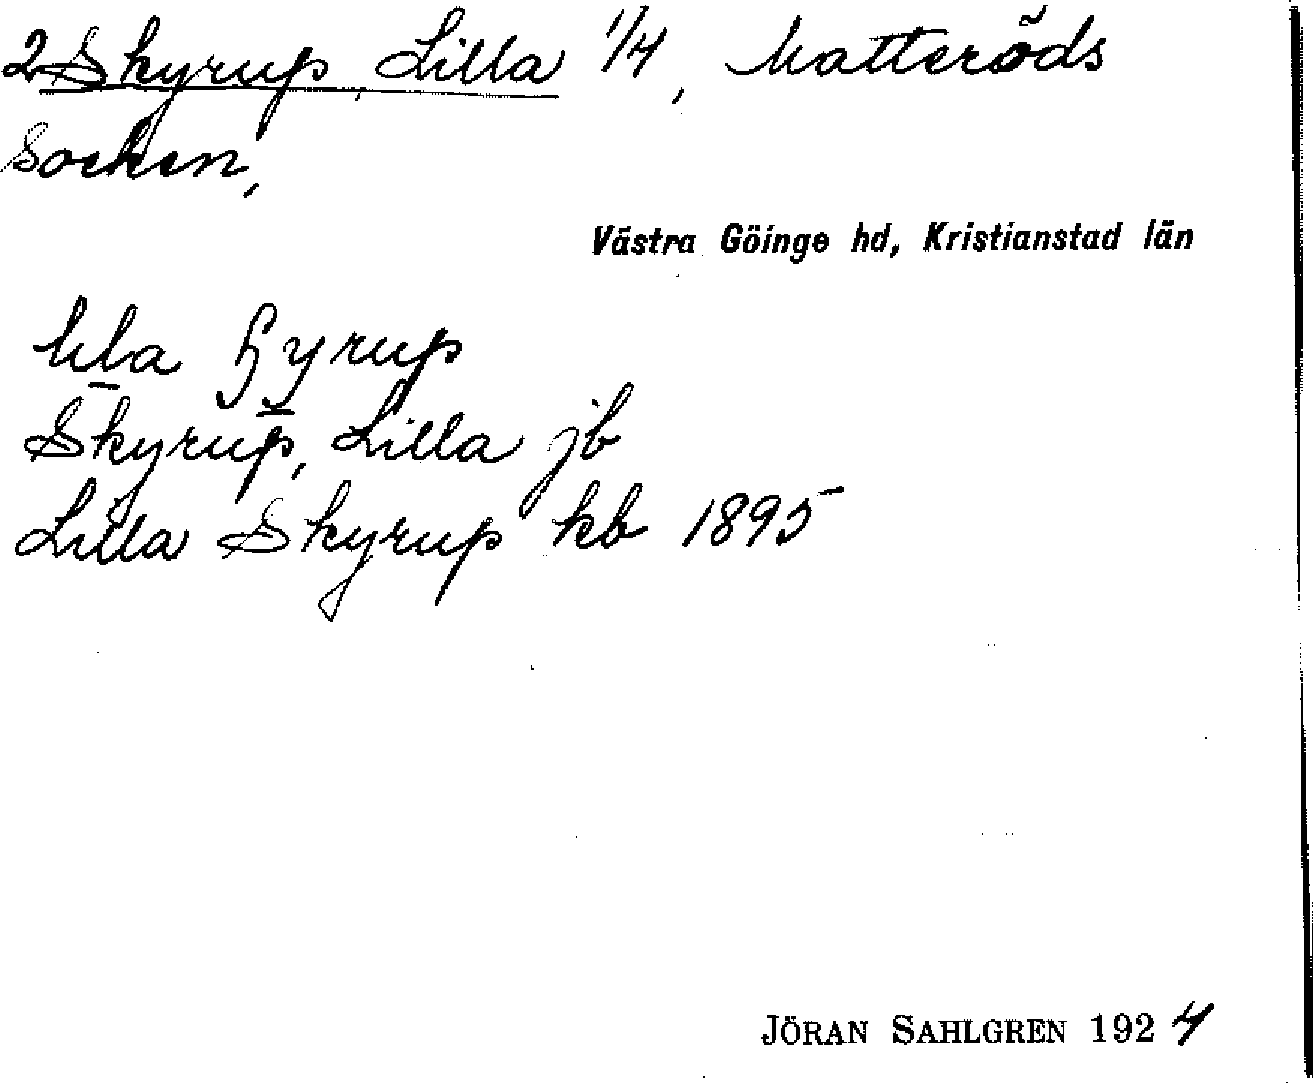 2 Skyrup, Lilla 1/4, Matteröds
Socken,
Västra Göinge hd, Kristianstad län
Skyrup, Lilla jb
Lilla Skyrup kb 1895
JÖRAN SAHLGREN 1924